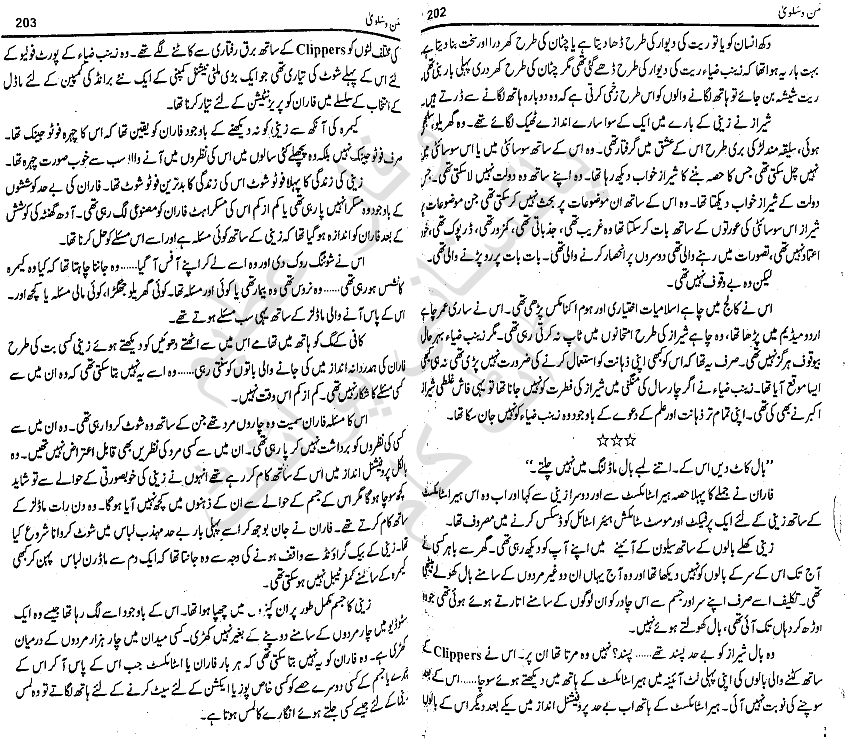 من و سلویٰ
202
دکھ انسان کو یا تو ریت کی دیوار کی طرح ڈھا دیتا ہے یا چٹان کی طرح کھردرا اور سخت بنا دیتا ہے
بہت بار یہ ہوا تھا کہ زینب ضیاء ریت کی دیوار کی طرح ڈھے گئی تھی مگر چٹان کی طرح کھردری پہلی بار بنی تھی
ریت شیشہ بن جائے تو ہاتھ لگانے والوں کو اس طرح زخمی کرتی ہے کہ وہ دوبارہ ہاتھ لگانے سے ڈرتے ہیں۔
شیراز نے زینی کے بارے میں ایک کے سوا سارے اندازے ٹھیک لگائے تھے۔ وہ گھریلو، سلجھی
ہوئی، سلیقہ مند لڑکی بری طرح اس کے عشق میں گرفتار تھی۔ وہ اس کے ساتھ سوسائٹی میں یا اس سوسائٹی میں
نہیں چل سکتی تھی جس کا حصہ بننے کا شیراز خواب دیکھ رہا تھا۔ وہ اپنے ساتھ وہ دولت نہیں لا سکتی تھی۔ جس
دولت کے شیراز خواب دیکھتا تھا۔ وہ اس کے ساتھ ان موضوعات پر بحث نہیں کر سکتی تھی جن موضوعات پر
شیراز اس سوسائٹی کی عورتوں کے ساتھ بات کر سکتا تھا وہ غریب تھی، جذباتی تھی، کمزور تھی، ڈرپوک تھی، خود
اعتماد نہیں تھی، تصورات میں رہنے والی تھی دوسروں پر انحصار کرنے والی تھی۔ بات بات پر رو پڑنے والی تھی۔
لیکن وہ بے وقوف نہیں تھی۔
اس نے کالج میں چاہے اسلامیات اختیاری اور ہوم اکنامکس پڑھی تھی۔ اس نے ساری عمر چاہے
اردو میڈیم میں پڑھا تھا، وہ چاہے شیراز کی طرح امتحانوں میں ٹاپ نہ کرتی رہی تھی۔ مگر زینب ضیاء بہرحال
بیوقوف ہرگز نہیں تھی۔ صرف یہ تھا کہ اس کو کبھی اپنی ذہانت کو استعمال کرنے کی ضرورت نہیں پڑی تھی نہ ہی کبھی
ایسا موقع آیا تھا۔ زینب ضیاء نے اگر چار سال کی منگنی میں شیراز کی فطرت کو نہیں جانا تھا تو یہی فاش غلطی شیراز
اکبر نے بھی کی تھی۔ اپنی تمام تر ذہانت اور علم کے دعوے کے باوجود وہ زینب ضیاء کو نہیں جان سکا تھا۔
☆☆☆
”بال کاٹ دیں اس کے۔ اتنے لمبے بال ماڈلنگ میں نہیں چلتے۔“
فاران نے جملے کا پہلا حصہ ہیر اسٹائلسٹ سے اور دوسرا زینی سے کہا اور اب وہ اس ہیر اسٹائلسٹ
کے ساتھ زینی کے لئے ایک پرفیکٹ اور موسٹ سٹائلش ہیئر اسٹائل کو ڈسکس کرنے میں مصروف تھا۔
زینی کھلے بالوں کے ساتھ سیلون کے آئینے میں اپنے آپ کو دیکھ رہی تھی۔ گھر سے باہر کسی نے
آج تک اس کے سر کے بالوں کو نہیں دیکھا تھا اور وہ آج یہاں ان دو غیر مردوں کے سامنے بال کھولے بیٹھی
تھی۔ تکلیف اسے صرف اپنے سر اور جسم سے اس چادر کو ان لوگوں کے سامنے اتارتے ہوئے ہوئی تھی جو وہ
اوڑھ کر وہاں تک آئی تھی، بال کھولتے ہوئے نہیں۔
وہ بال شیراز کو بے حد پسند تھے...... پسند؟ نہیں وہ مرتا تھا ان پر۔ اس نے Clippers کے
ساتھ کٹنے والی بالوں کی اپنی پہلی لٹ آئینہ میں ہیر اسٹائلسٹ کے ہاتھ میں دیکھتے ہوئے سوچا...... اس کے بعد
سوچنے کی نوبت نہیں آئی۔ ہیر اسٹائلسٹ کے ہاتھ اب بے حد پروفیشنل انداز میں یکے بعد دیگر اس کے بالوں
من و سلویٰ
203
کی مختلف لٹوں کو Clippers کے ساتھ برق رفتاری سے کاٹنے لگے تھے۔ وہ زینب ضیاء کے پورٹ فولیو کے
لئے اس کے پہلے شوٹ کی تیاری تھی جو ایک بڑی ملٹی نیشنل کمپنی کے ایک نئے برانڈ کی کمپین کے لئے ماڈل
کے انتخاب کے سلسلے میں فاران کو پریزنٹیشن کے لئے تیار کرنا تھا۔
کیمرہ کی آنکھ سے زینی کو نہ دیکھنے کے باوجود فاران کو یقین تھا کہ اس کا چہرہ فوٹو جینک تھا۔
صرف فوٹو جینک نہیں بلکہ وہ پچھلے کئی سالوں میں اس کی نظروں میں آنے والا سب سے خوب صورت چہرہ تھا۔
زینی کی زندگی کا پہلا فوٹو شوٹ اس کی زندگی کا بدترین فوٹو شوٹ تھا۔ فاران کی بے حد کوششوں
کے باوجود وہ مسکرا نہیں پا رہی تھی یا کم از کم اس کی مسکراہٹ فاران کو مصنوعی لگ رہی تھی۔ آدھ گھنٹہ کی کوشش
کے بعد فاران کو اندازہ ہو گیا تھا کہ زینی کے ساتھ کوئی مسئلہ ہے اور اسے اس مسئلے کو حل کرنا تھا۔
اس نے شوٹنگ روک دی اور وہ اسے لے کر اپنے آفس آ گیا...... وہ جاننا چاہتا تھا کہ کیا وہ کیمرہ
کانشس ہو رہی تھی...... وہ نروس تھی وہ بیمار تھی یا کوئی اور مسئلہ تھا۔ کوئی گھریلو جھگڑا، کوئی مالی مسئلہ یا کچھ اور۔
اس کے پاس آنے والی ماڈلز کے ساتھ یہی سب مسئلے ہوتے تھے۔
کافی کے مگ کو ہاتھ میں تھامے اس میں سے اٹھتے دھوئیں کو دیکھتے ہوئے زینی کسی بت کی طرح
فاران کی ہمدردانہ انداز میں کی جانے والی باتوں کو سنتی رہی...... وہ اسے یہ نہیں بتا سکتی تھی کہ وہ ان میں سے
کسی مسئلے کا شکار نہیں تھی۔ کم از کم اس وقت نہیں۔
اس کا مسئلہ فاران سمیت وہ چاروں مرد تھے جن کے ساتھ وہ شوٹ کروا رہی تھی۔ وہ ان میں سے
کسی کی نظروں کو برداشت نہیں کر پا رہی تھی۔ ان میں سے کسی مرد کی نظریں بھی قابل اعتراض نہیں تھیں۔ وہ
بالکل پروفیشنل انداز میں اس کے ساتھ کام کر رہے تھے انہوں نے زینی کی خوبصورتی کے حوالے سے تو شاید
کچھ سوچا ہو گا مگر اس کے جسم کے حوالے سے ان کے ذہنوں میں کچھ نہیں آیا ہو گا۔ وہ دن رات ماڈلز کے
ساتھ کام کرتے تھے۔ فاران نے جان بوجھ کر اسے پہلی بار بے حد مہذب لباس میں شوٹ کروانا شروع کیا
تھا۔ زینی کے بیک گراؤنڈ سے واقف ہونے کی وجہ سے وہ جانتا تھا کہ ایک دم سے ماڈرن لباس پہن کر بھی
کیمرہ کے سامنے کمفرٹیبل نہیں ہو سکتی تھی۔
زینی کا جسم مکمل طور پر ان کپڑوں میں چھپا ہوا تھا۔ اس کے باوجود اسے لگ رہا تھا جیسے وہ ایک
سٹوڈیو میں چار مردوں کے سامنے دوپٹے کے بغیر نہیں کھڑی۔ کسی میدان میں چار ہزار مردوں کے درمیان
کھڑی ہے۔ وہ فاران کو یہ نہیں بتا سکتی تھی کہ ہر بار فاران یا اسٹائلسٹ جب اس کے پاس آ کر اس کے
چہرے یا جسم کے کسی دوسرے حصے کو کسی خاص پوز یا ایکشن کے لئے سیٹ کرنے کے لئے ہاتھ لگاتے تو وہ لمس
زینی کے لئے جیسے کسی جلتے ہوئے انگارے کا لمس ہوتا ہے۔